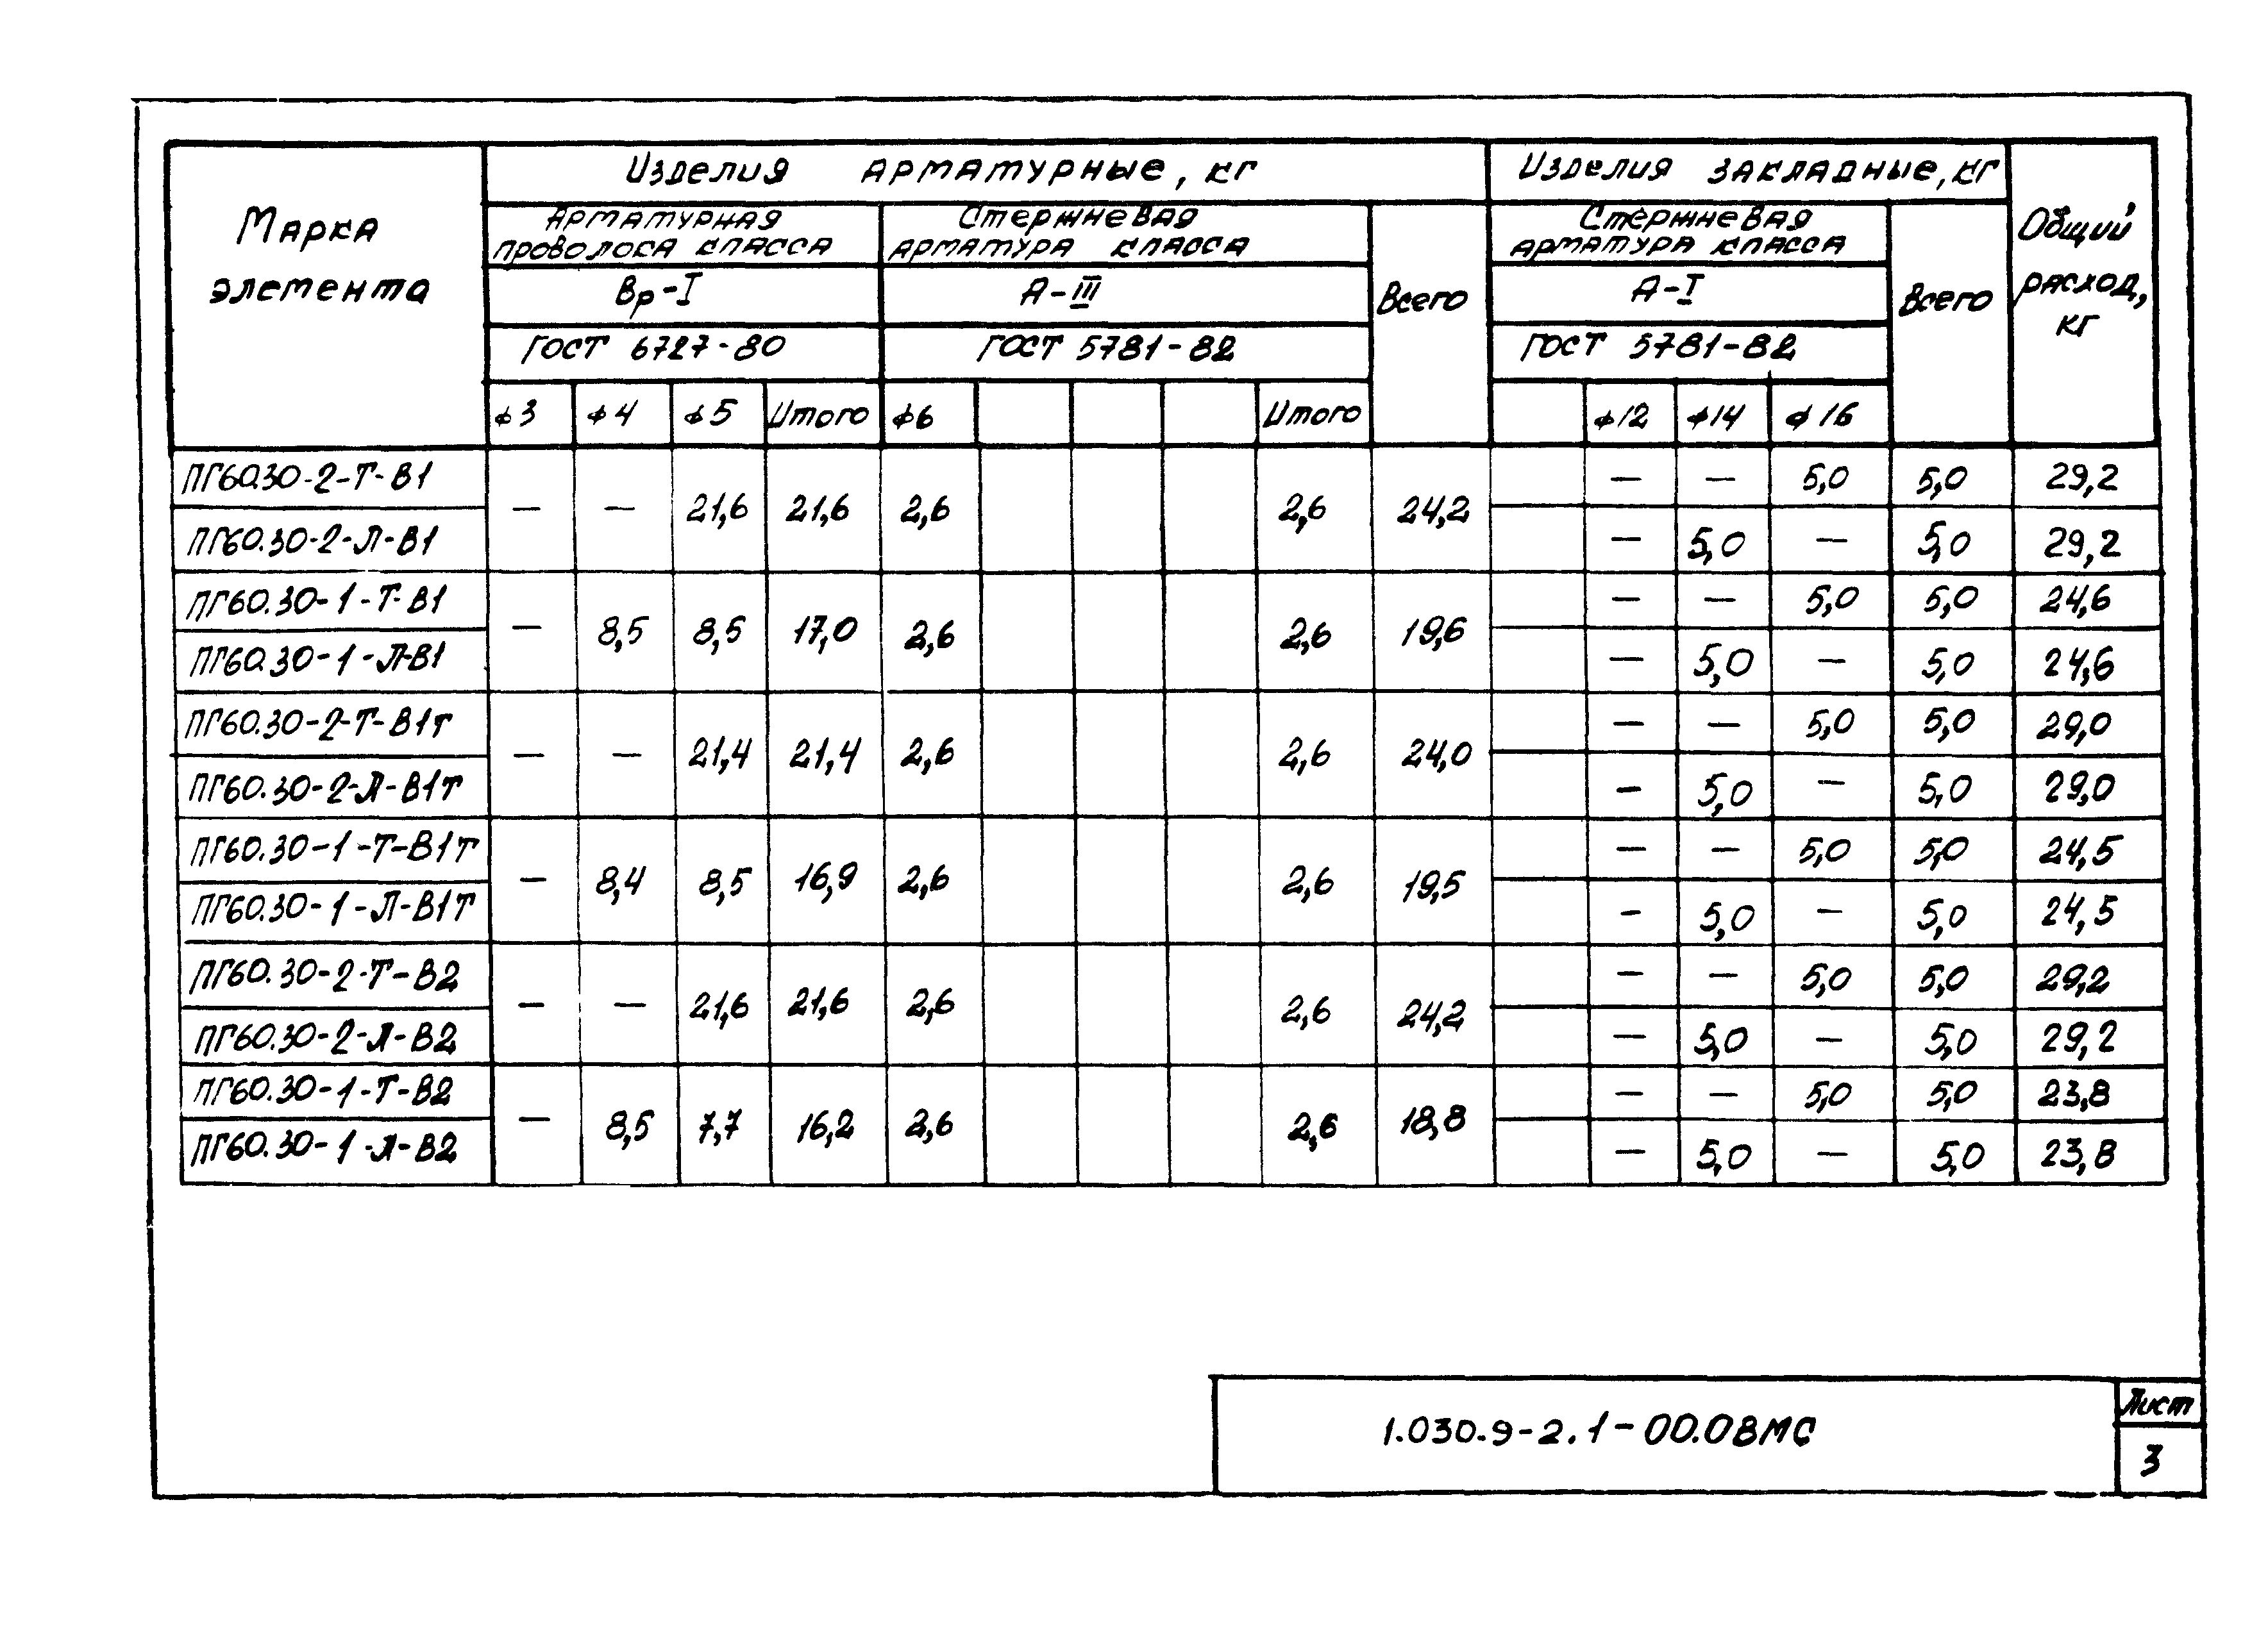 Марка элемента
Изделия арматурные, кг
Изделия закладные, кг
Общий расход, кг
Арматурная проволока класса
Стержневая арматура класса
Всего
Стержневая арматура класса
Всего
Вр-I
А-III
А-I
ГОСТ 6727-80
ГОСТ 5781-82
ГОСТ 5781-82
ф3 ф4 ф5 Итого ф6 Итого ф12 ф14 ф16
ПГ60.30-2-Т-В1 — — 21,6 21,6 2,6 2,6 24,2 — — 5,0 5,0 29,2
ПГ60.30-2-Л-В1 — 5,0 — 5,0 29,2
ПГ60.30-1-Т-В1 — 8,5 8,5 17,0 2,6 2,6 19,6 — — 5,0 5,0 24,6
ПГ60.30-1-Л-В1 — 5,0 — 5,0 24,6
ПГ60.30-2-Т-В1т — — 21,4 21,4 2,6 2,6 24,0 — — 5,0 5,0 29,0
ПГ60.30-2-Л-В1т — 5,0 — 5,0 29,0
ПГ60.30-1-Т-В1т — 8,4 8,5 16,9 2,6 2,6 19,5 — — 5,0 5,0 24,5
ПГ60.30-1-Л-В1т — 5,0 — 5,0 24,5
ПГ60.30-2-Т-В2 — — 21,6 21,6 2,6 2,6 24,2 — — 5,0 5,0 29,2
ПГ60.30-2-Л-В2 — 5,0 — 5,0 29,2
ПГ60.30-1-Т-В2 — 8,5 7,7 16,2 2,6 2,6 18,8 — — 5,0 5,0 23,8
ПГ60.30-1-Л-В2 — 5,0 — 5,0 23,8
1.030.9-2.1-00.08МС
Лист
3